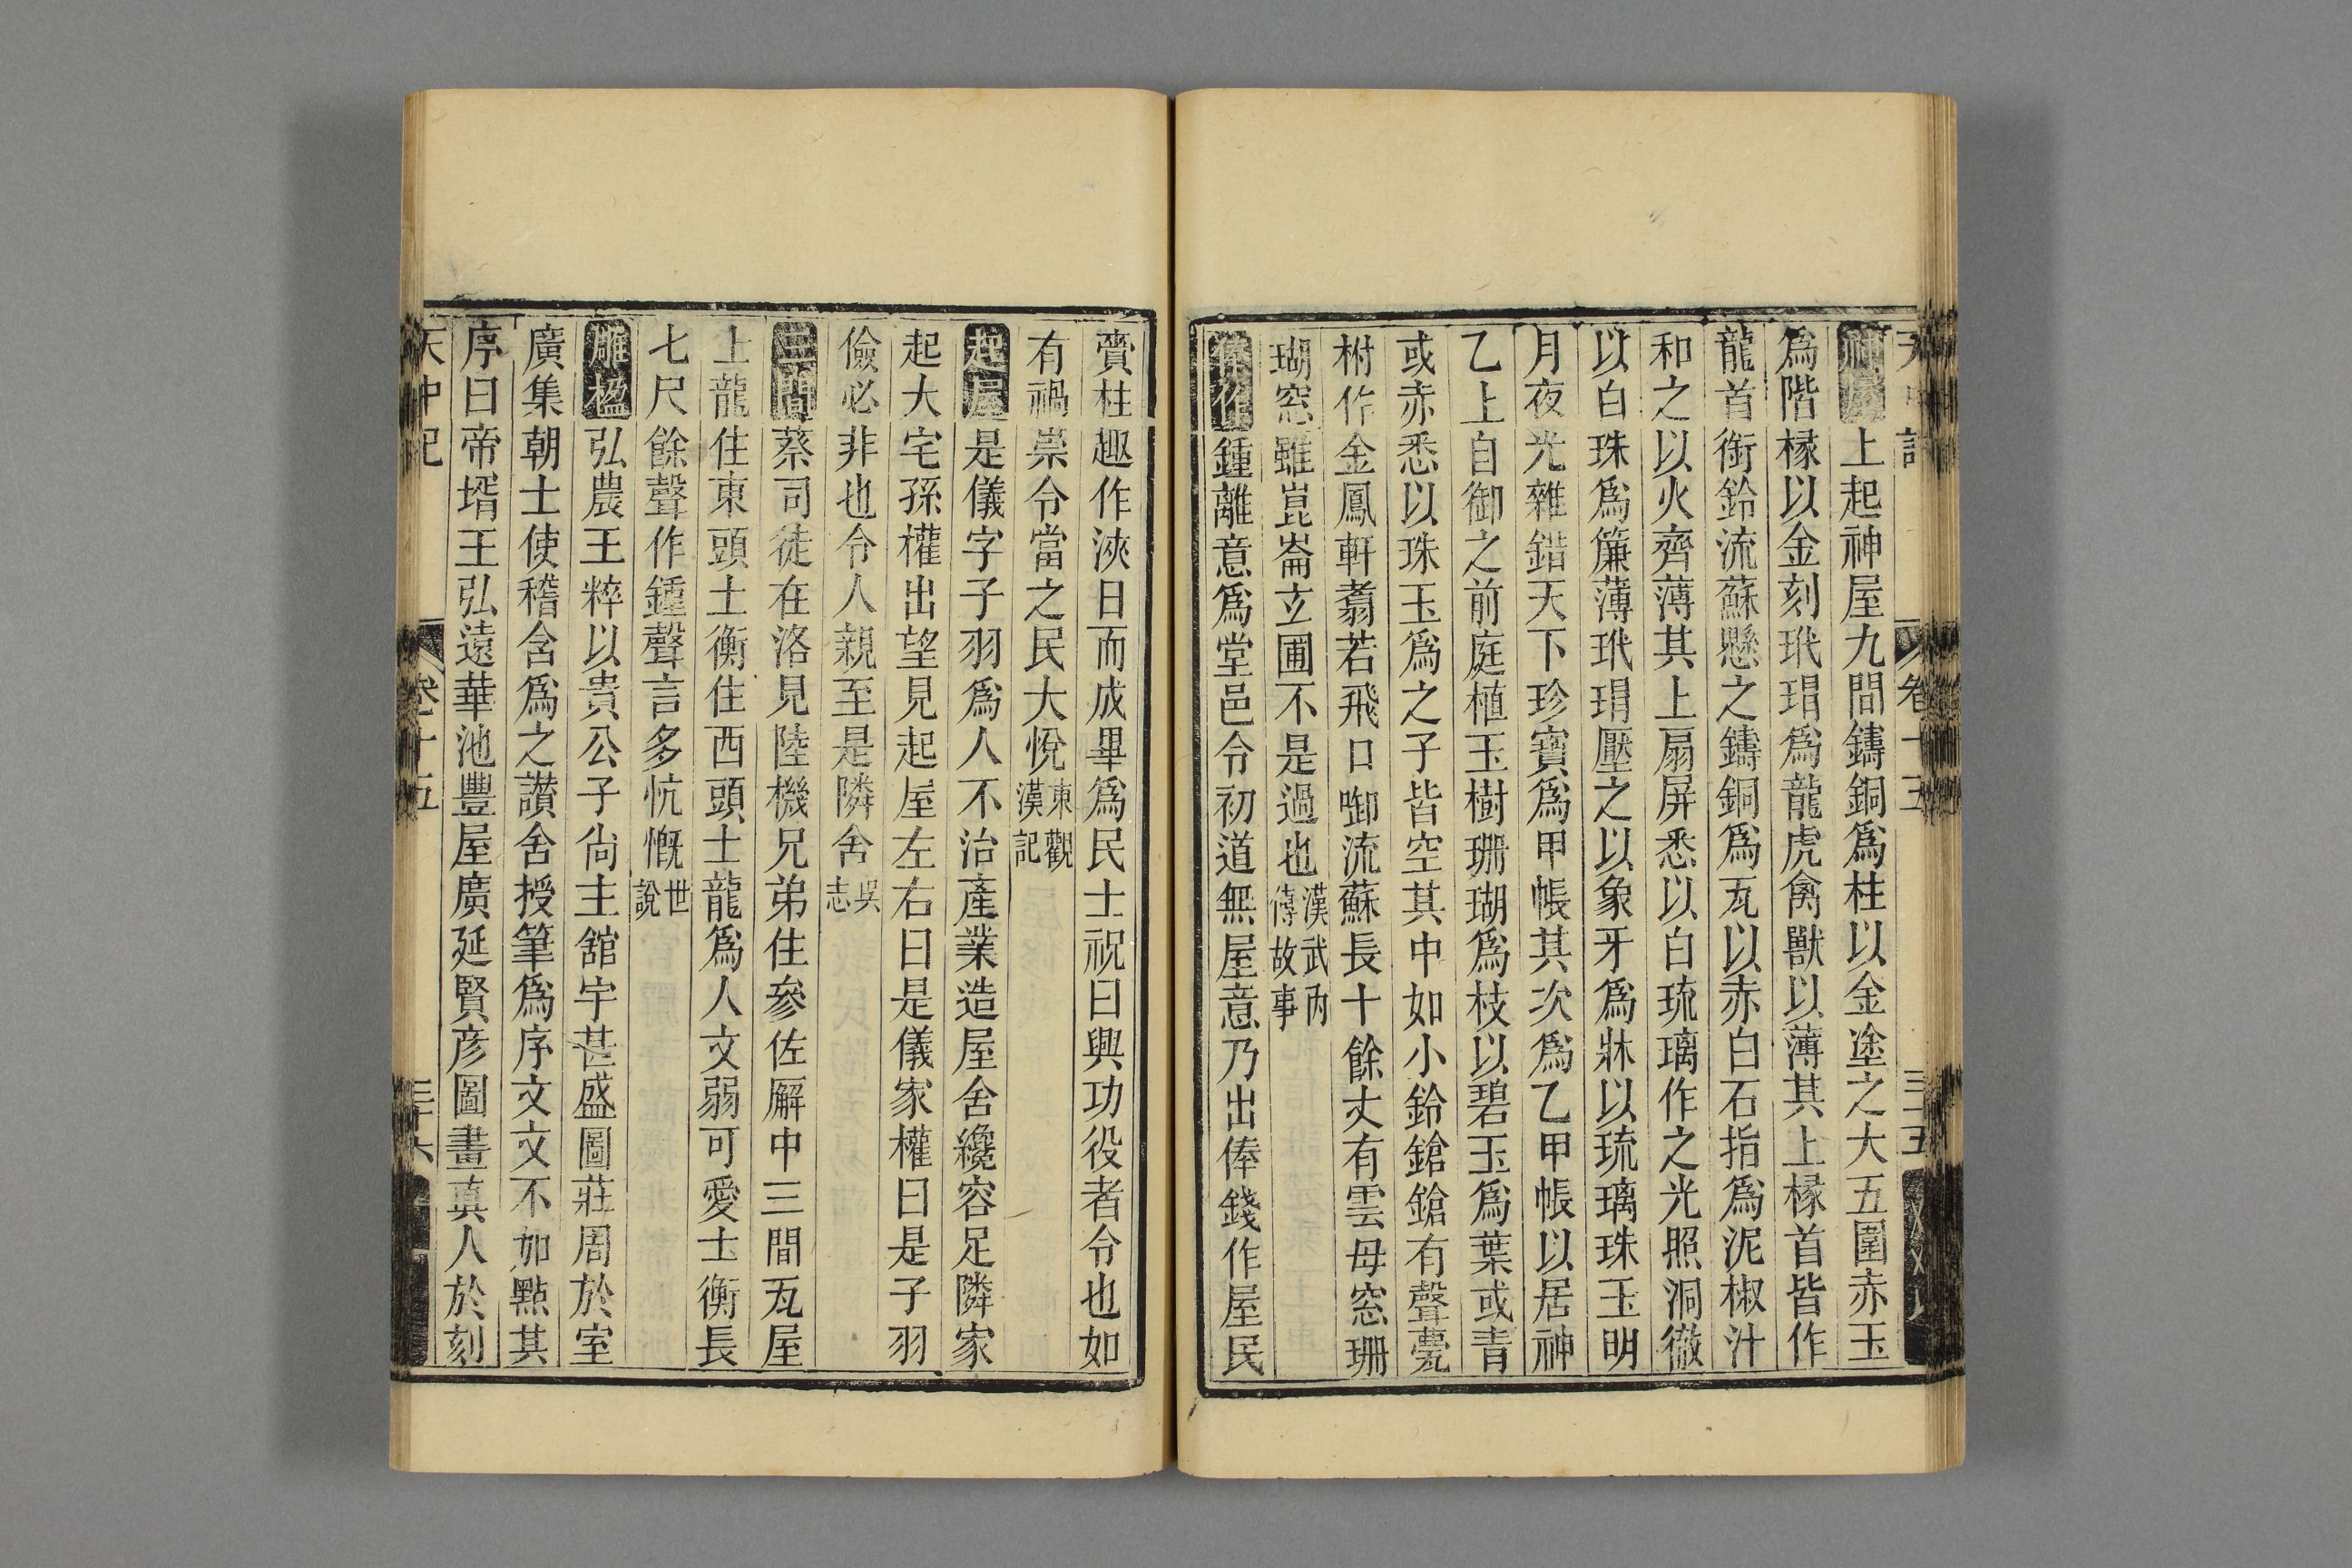 天中記 卷十五 三十五
神屋上起神屋九間鑄銅爲柱以金塗之大五圍赤玉
爲階椽以金刻玳瑁爲龍虎禽獸以薄其上椽首皆作
龍首銜鈴流蘇懸之鑄銅爲瓦以赤白石指爲泥椒汁
和之以火齊薄其上扇屏悉以白琉璃作之光照洞徹
以白珠爲簾薄玳瑁壓之以象牙爲牀以琉璃珠玉明
月夜光雜錯天下珍寶爲甲帳其次爲乙甲帳以居神
乙上自御之前庭植玉樹珊瑚爲枝以碧玉爲葉或青
或赤悉以珠玉爲之子皆空其中如小鈴鎗鎗有聲甍
柎作金鳳軒翥若飛口啣流蘇長十餘丈有雲母窓珊
瑚窓雖崑崙玄圃不是過也漢武內傳故事
俸作鍾離意爲堂邑令初道無屋意乃出俸錢作屋民
賫柱趣作浹日而成畢爲民士祝曰興功役者令也如
有禍祟令當之民大悅東觀漢記
起屋是儀字子羽爲人不治產業造屋舍纔容足隣家
起大宅孫權出望見起屋左右曰是儀家權曰是子羽
儉必非也令人親至是隣舍吳志
三間蔡司徒在洛見陸機兄弟住參佐廨中三間瓦屋
上龍住東頭士衡住西頭士龍爲人文弱可愛士衡長
七尺餘聲作鍾聲言多忼慨世說
雕楹弘農王粹以貴公子尚主舘宇甚盛圖莊周於室
廣集朝士使稽含爲之讃含授筆爲序文文不加點其
序曰帝壻王弘遠華池豐屋廣延賢彥圖畫真人於刻
天中記 卷十五 三十六